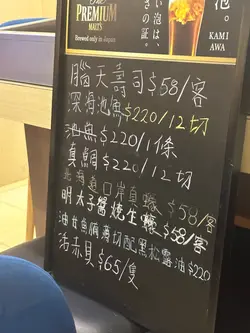 The
PREMIUM
MALT'S
Brewed only in Japan
泡。
い泡は、
きの証。
KAMI
AWA
腦天壽司$58/客
深海池魚$220/12切
池魚$220/1條
真鯛$220/12切
北海道口岸真蠔 $58/客
明太子醬燒生蠔 $58/客
油甘魚薄切配黑松露油$220
活赤貝$65/隻